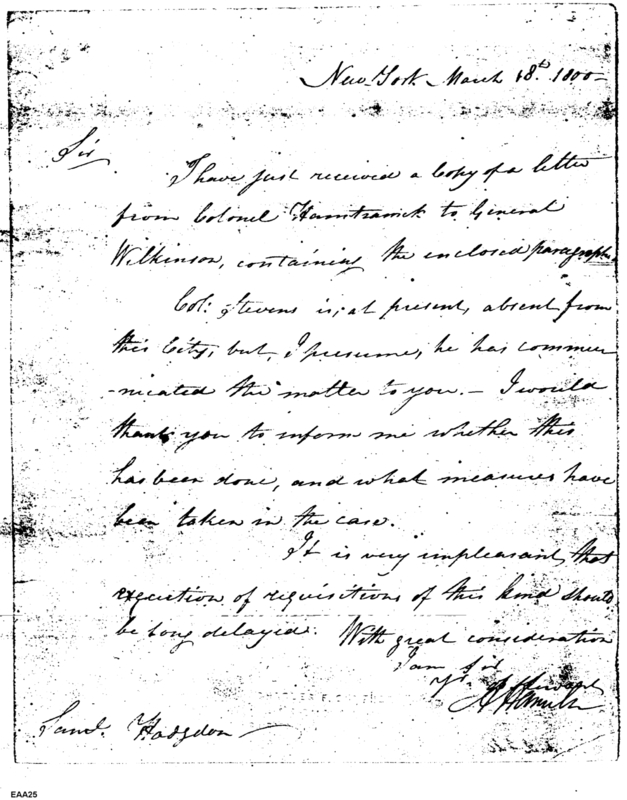 New-York March 18th. 1800-
Sir
I have just received a Copy of a letter
from Colonel Hamtramck to General
Wilkinson, containing the enclosed paragraph.
Col: Stevens is, at present, absent from
this City; but, I presume, he has commu
-nicated the matter to you. - I would
thank you to inform me whether this
has been done, and what measures have
been taken in the case.
It is very unpleasant that
execution of requisitions of this kind should
be long delayed. With great consideration
I am Sir
Yr.
A Hamilton
Saml. Hodgdon
EAA25